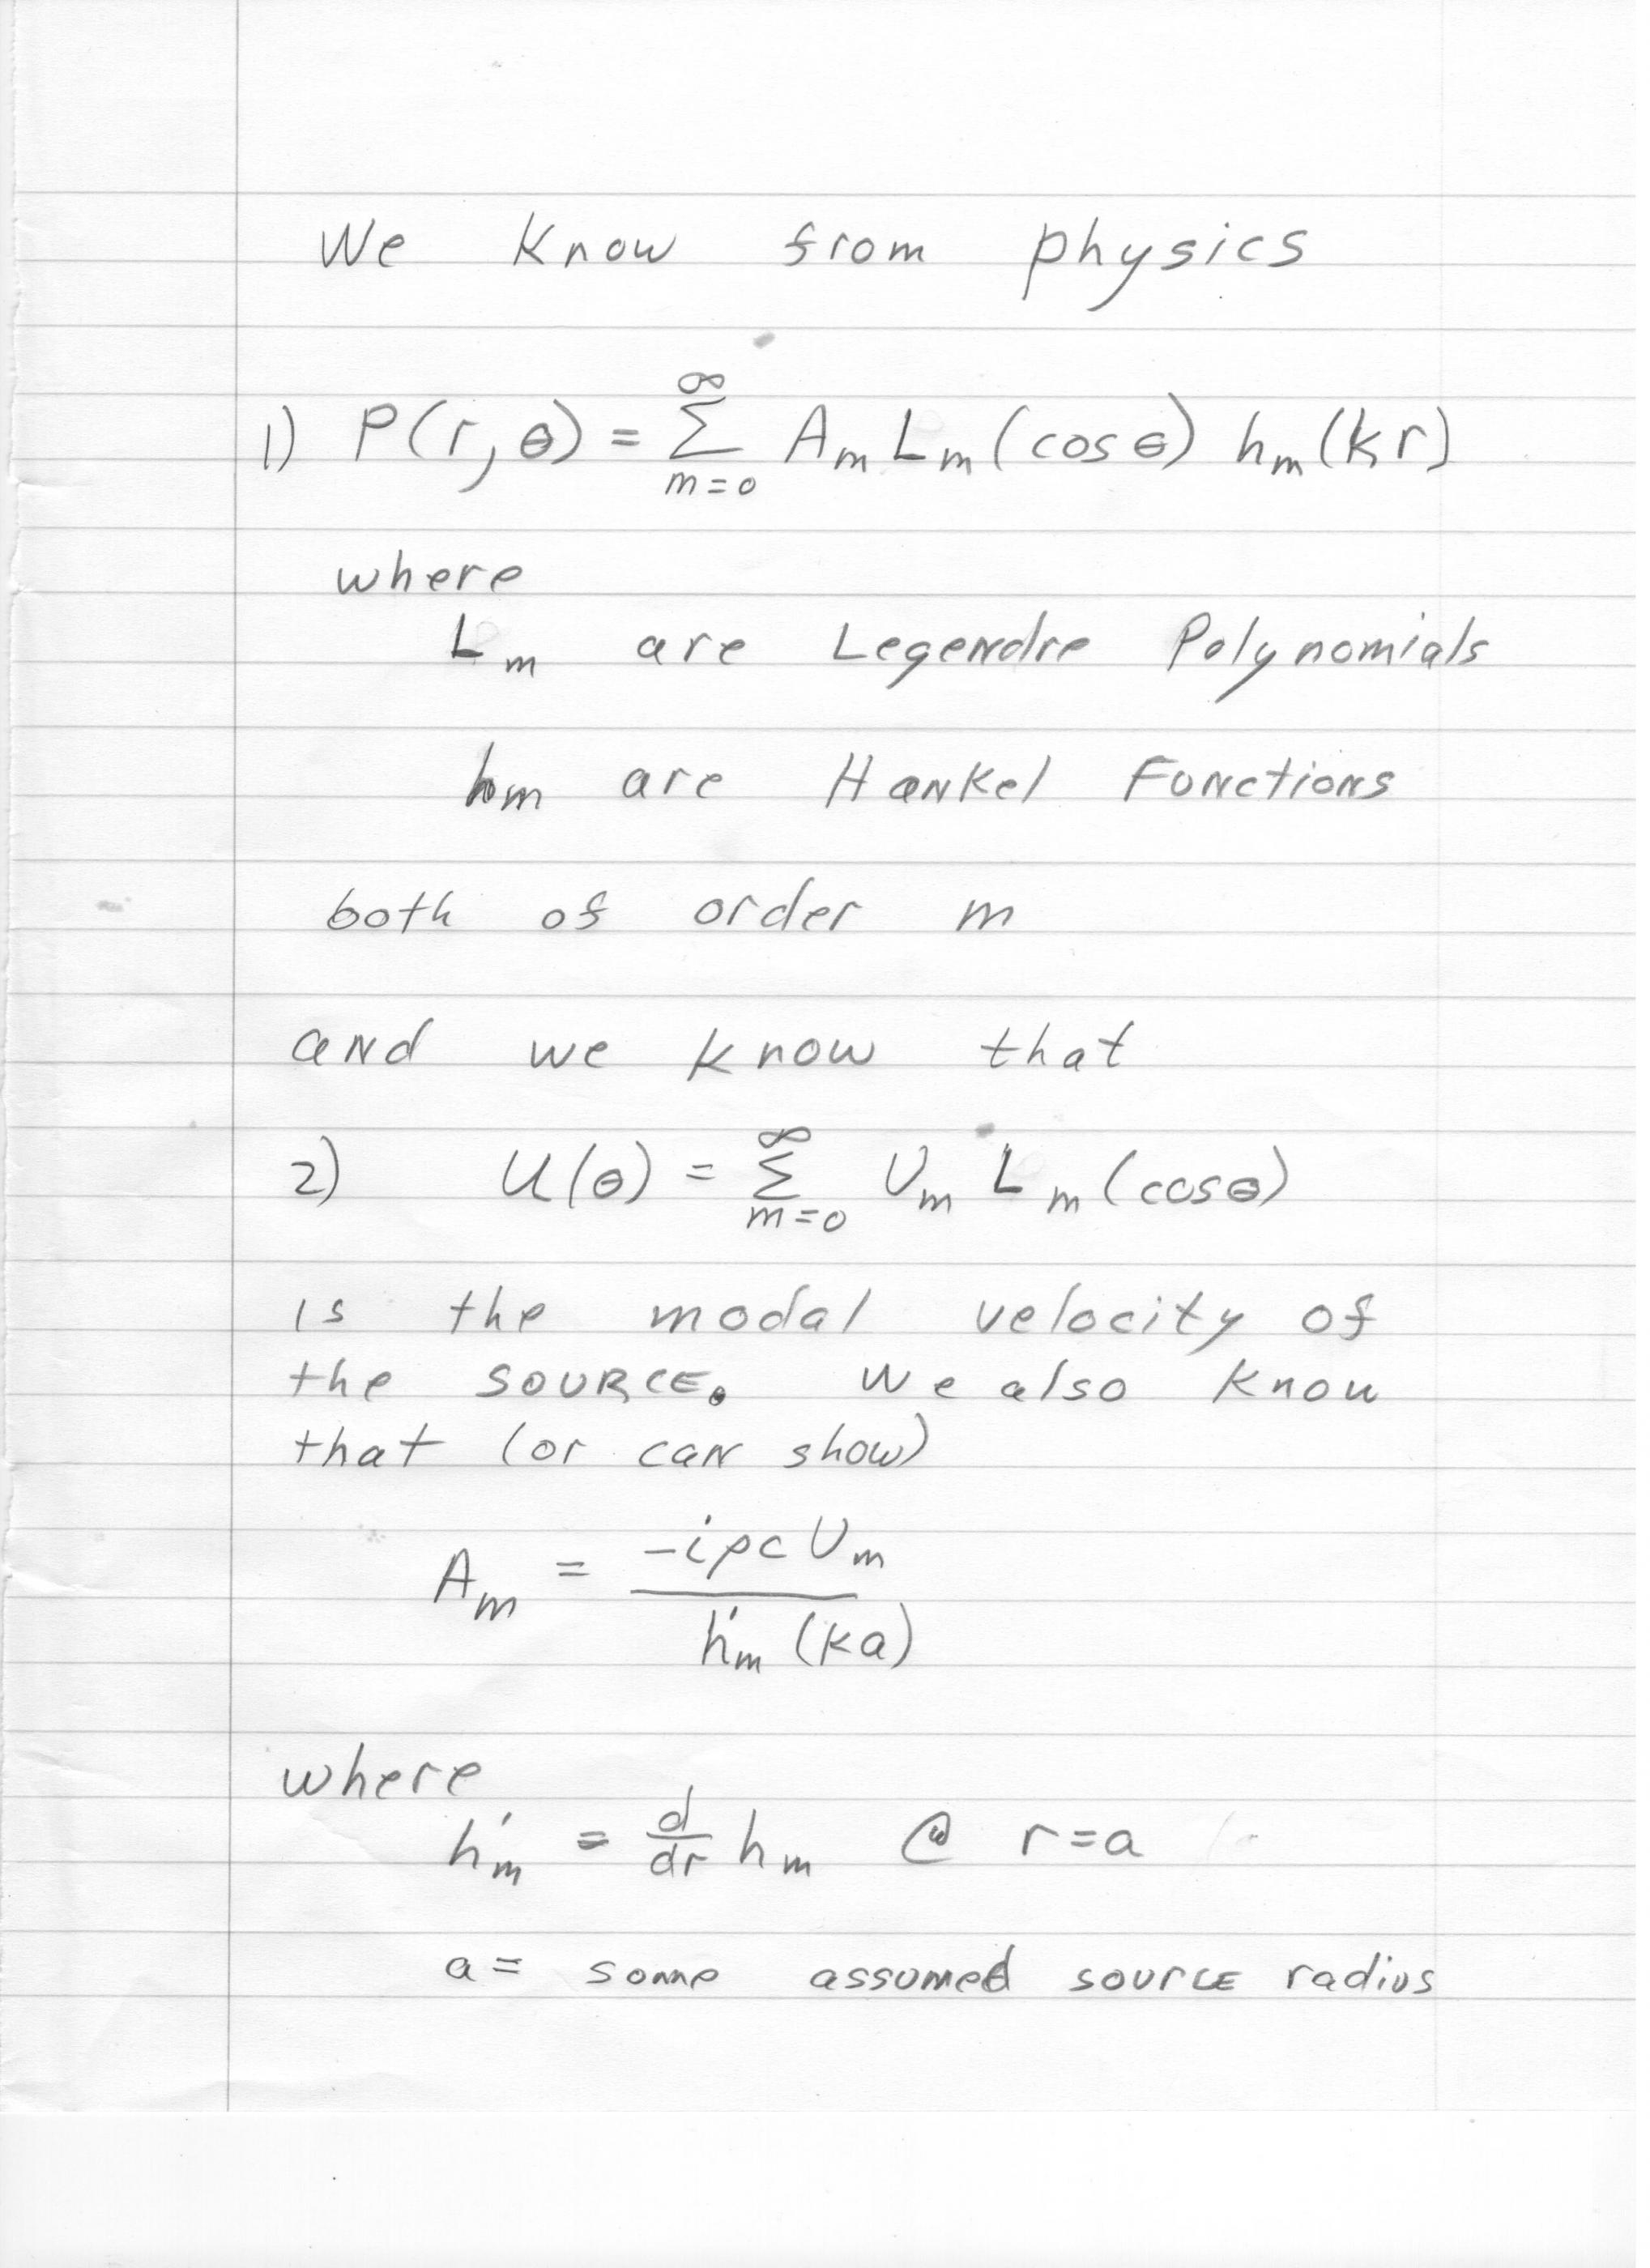 We Know from physics
1) P(r,θ) = ∞ Σ m=0 Am Lm (cos θ) hm (kr)
where
Lm are Legendre Polynomials
hm are Hankel Functions
both of order m
and we know that
2) U(θ) = ∞ Σ m=0 Um Lm (cosθ)
is the modal velocity of
the SOURCE. We also know
that (or can show)
Am = -iρc Um / h'm (ka)
where
h'm = d/dr hm @ r=a
a= some assumed source radius